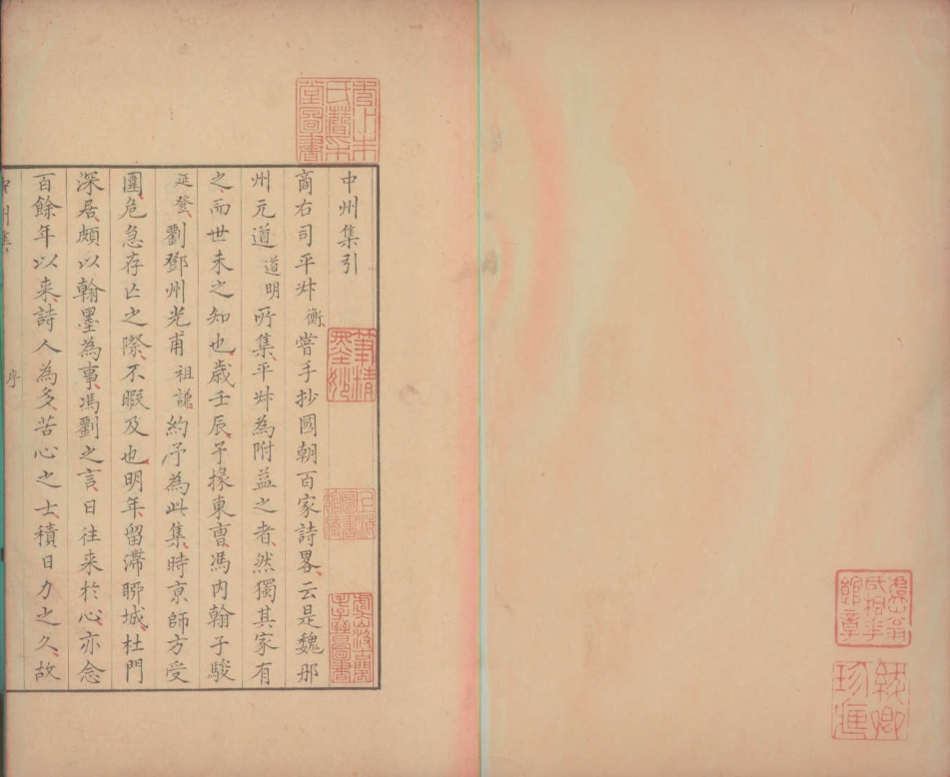 秀水朱氏潛采堂圖書
中州集引
筆精墨妙
上海圖書館藏
商右司平叔衡嘗手抄國朝百家詩畧云是魏邢
州元道道明所集平叔為附益之者然獨其家有
之而世未之知也歲壬辰予掾東曹馮內翰子駿
延登劉鄧州光甫祖謙約予為此集時京師方受
圍危急存亡之際不暇及也明年留滯聊城杜門
深居頗以翰墨為事馮劉之言日往來於心亦念
百餘年以来詩人為多苦心之士積日力之久故
中州集 序